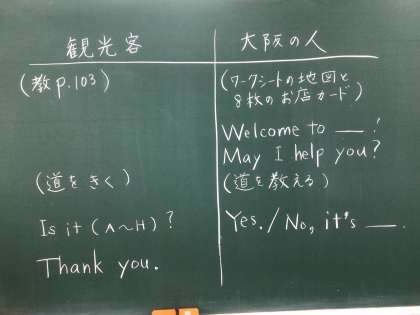 観光客
(教p.103)
(道をきく)
Is it (A~H)?
Thank you.
大阪の人
(ワークシートの地図と
8枚のお店カード)
Welcome to __!
May I help you?
(道を教える)
Yes./No, it's __.